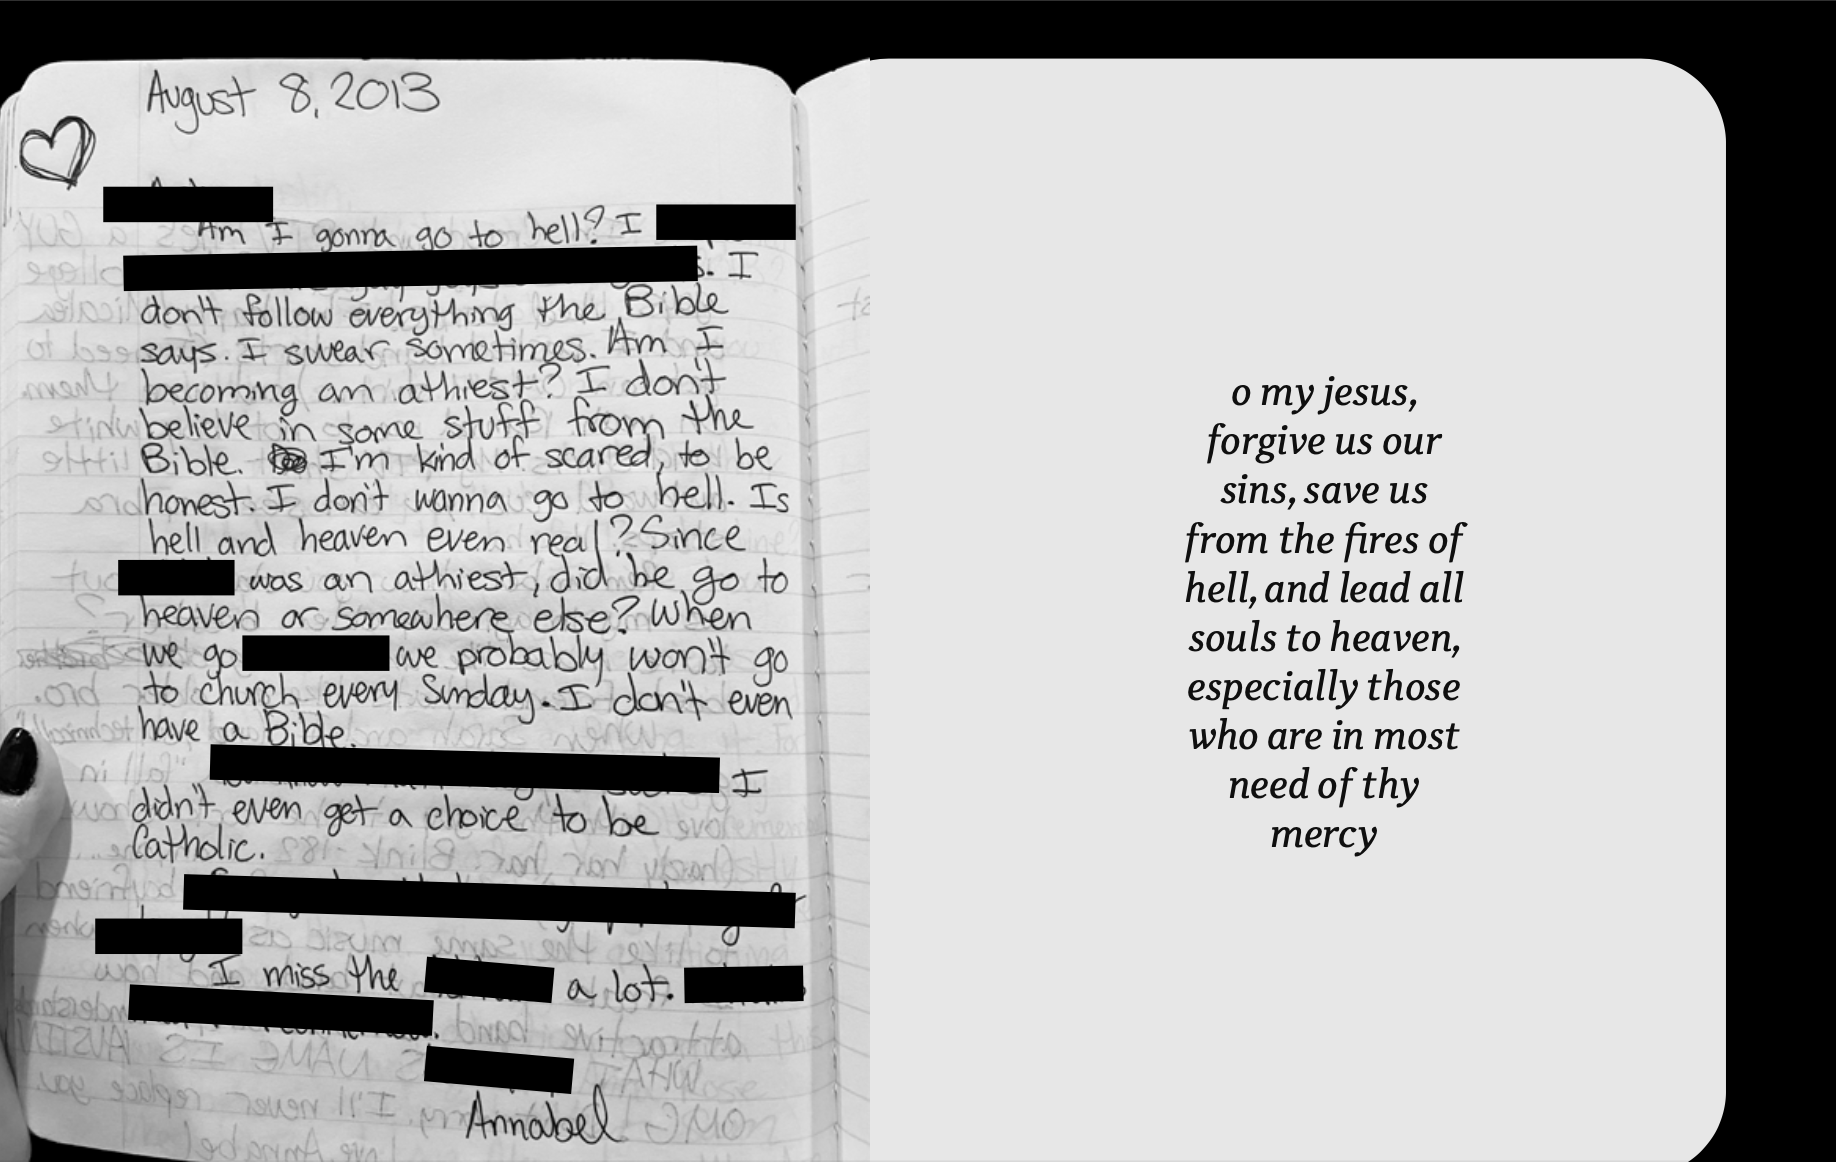 August 8, 2013
Am I gonna go to hell? I
I
don't follow everything the Bible
says. I swear sometimes. Am I
becoming an athiest? I don't
believe in some stuff from the
Bible. I'm kind of scared, to be
honest. I don't wanna go to hell. Is
hell and heaven even real? Since
was an athiest, did he go to
heaven or somewhere else? When
we go we probably won't go
to church every Sunday. I don't even
have a Bible.
I
didn't even get a choice to be
Catholic.
I miss the a lot.
Annabel
o my jesus,
forgive us our
sins, save us
from the fires of
hell, and lead all
souls to heaven,
especially those
who are in most
need of thy
mercy